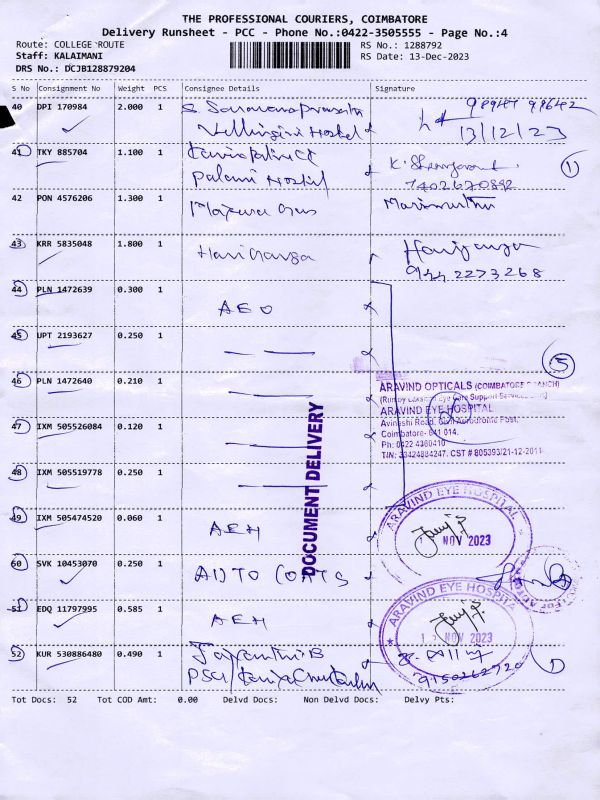 THE PROFESSIONAL COURIERS, COIMBATORE
Delivery Runsheet - PCC - Phone No.:0422-3505555 - Page No.:4
Route: COLLEGE ROUTE
RS No.: 1288792
Staff: KALAIMANI
RS Date: 13-Dec-2023
DRS No.: DCJB128879204
S No Consignment No Weight PCS Consignee Details Signature
40 DPI 170984 2.000 1
Hostel
13/12/23
41 TKY 885704 1.100 1
Palani Hostel
7402670892
1
42 PON 4576206 1.300 1
43 KRR 5835048 1.800 1
9442273268
44 PLN 1472639 0.300 1 AEO
45 UPT 2193627 0.250 1
5
46 PLN 1472640 0.210 1
ARAVIND OPTICALS (COIMBATORE BRANCH)
ARAVIND EYE HOSPITAL
Avinashi Road, Civil Aerodrome Post,
Coimbatore- 641 014.
Ph: 0422 4360410
TIN: 33424884247. CST # 805393/21-12-2011
47 IXM 505526084 0.120 1
DOCUMENT DELIVERY
48 IXM 505519778 0.250 1
49 IXM 505474520 0.060 1 AEH
ARAVIND EYE HOSPITAL
NOV 2023
50 SVK 10453070 0.250 1 AUTO COATS
51 EDQ 11797995 0.585 1 AEH
ARAVIND EYE HOSPITAL
NOV 2023
52 KUR 530886480 0.490 1 Jayanthi B
9150262720
1
Tot Docs: 52 Tot COD Amt: 0.00 Delvd Docs: Non Delvd Docs: Delvy Pts: